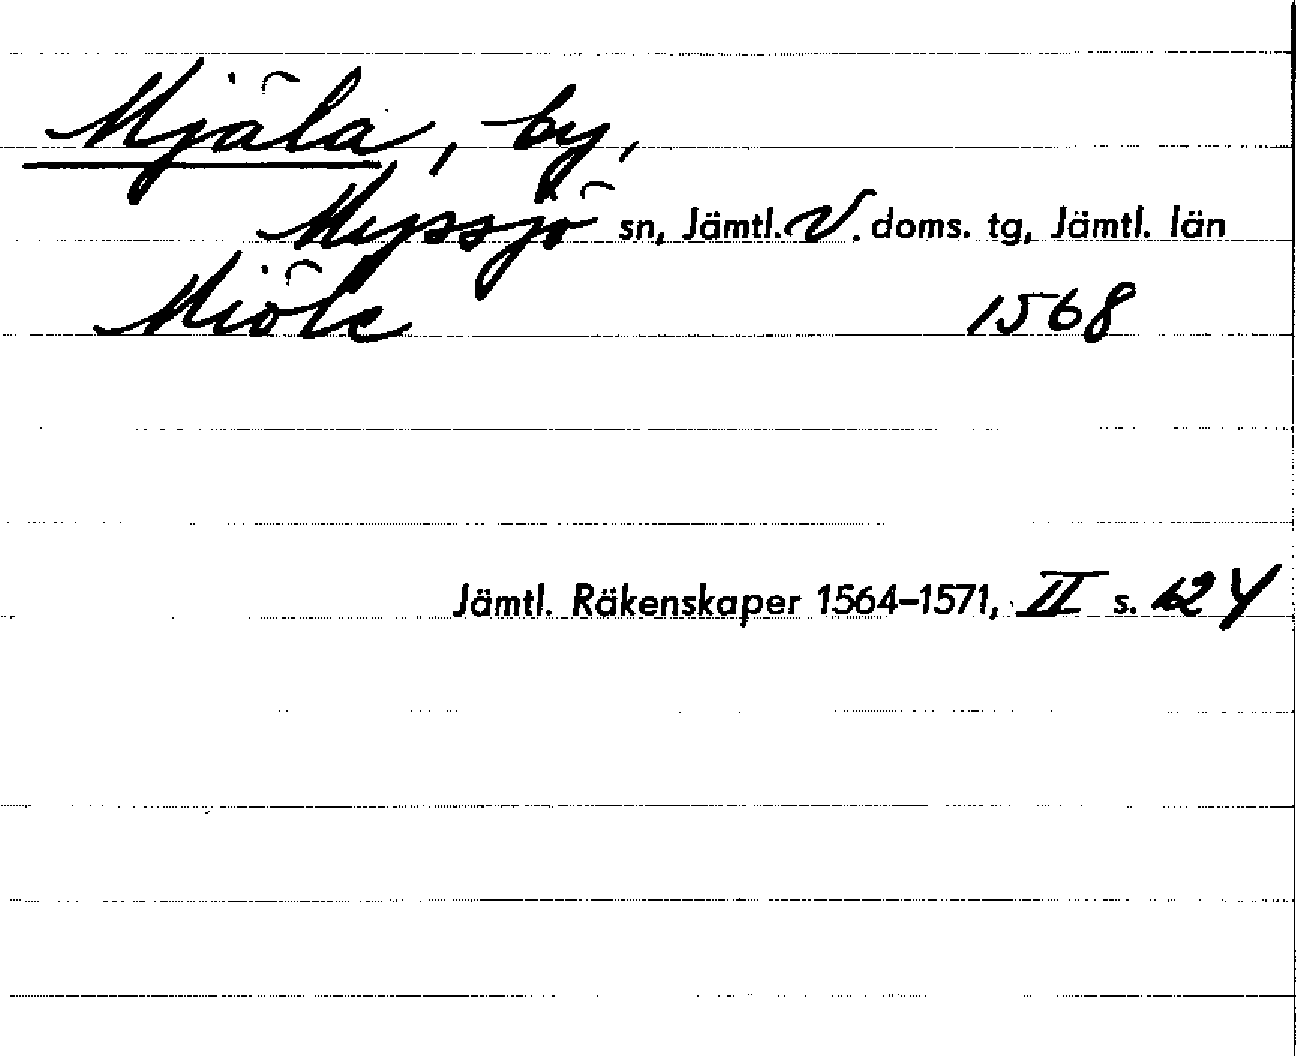 Mjäla, by,
Myssjö sn, Jämtl. V. doms. tg, Jämtl. län
Miöle 1568
Jämtl. Räkenskaper 1564–1571, II s. 124